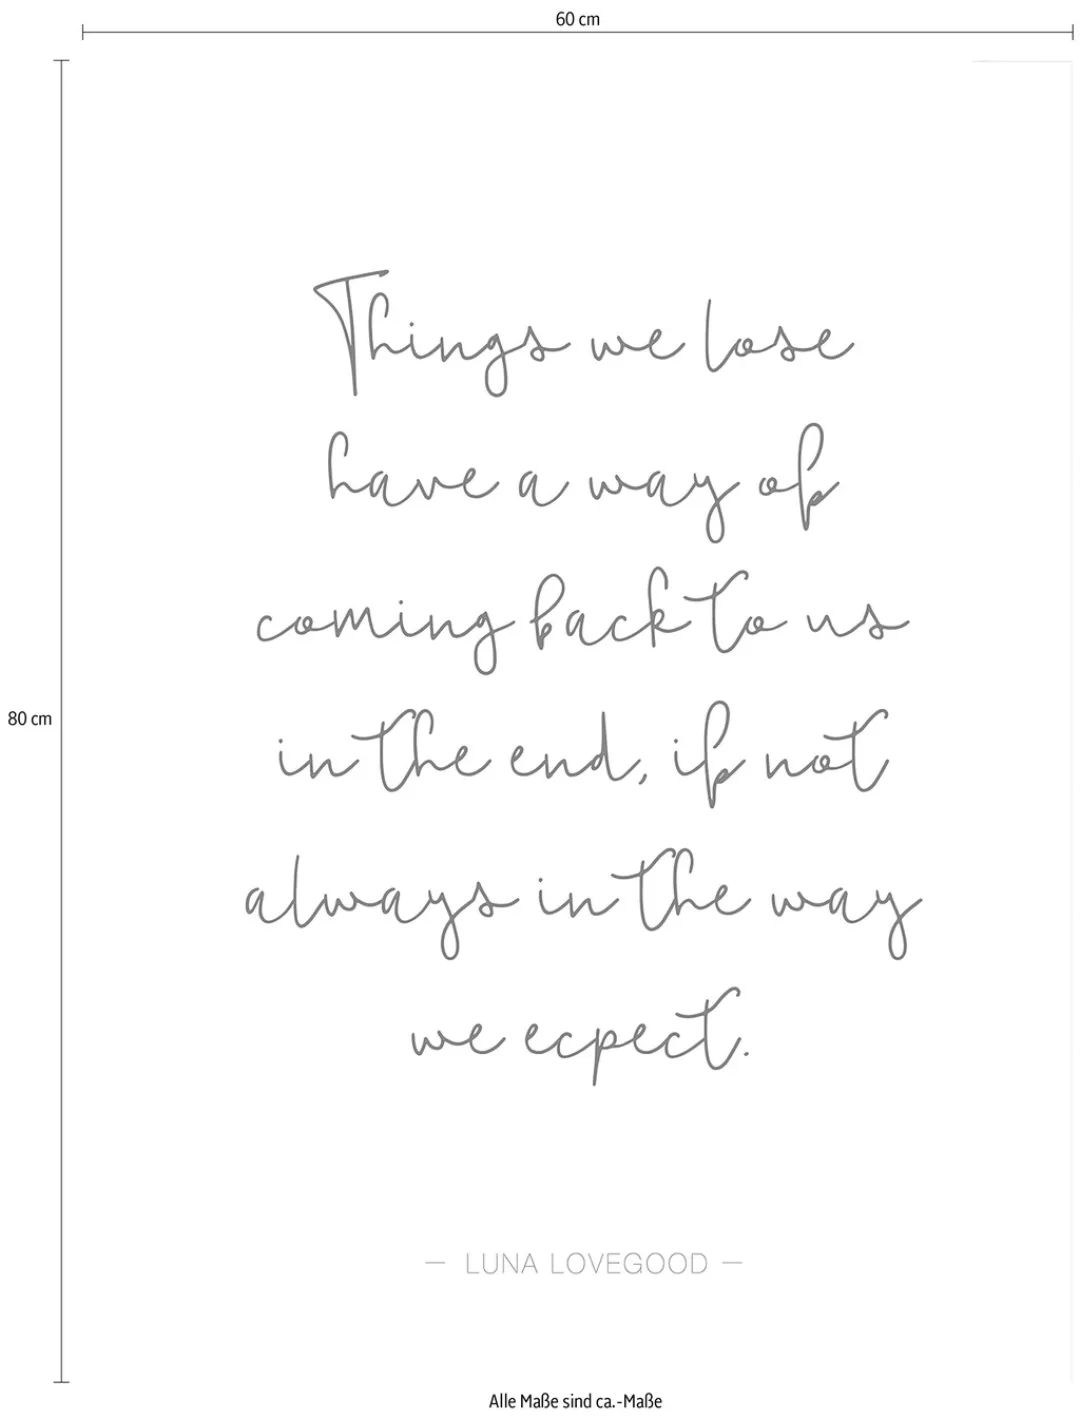 60 cm
Things we lose
have a way of
coming back to us
80 cm
in the end, if not
always in the way
we ecpect.
— LUNA LOVEGOOD —
Alle Maße sind ca.-Maße